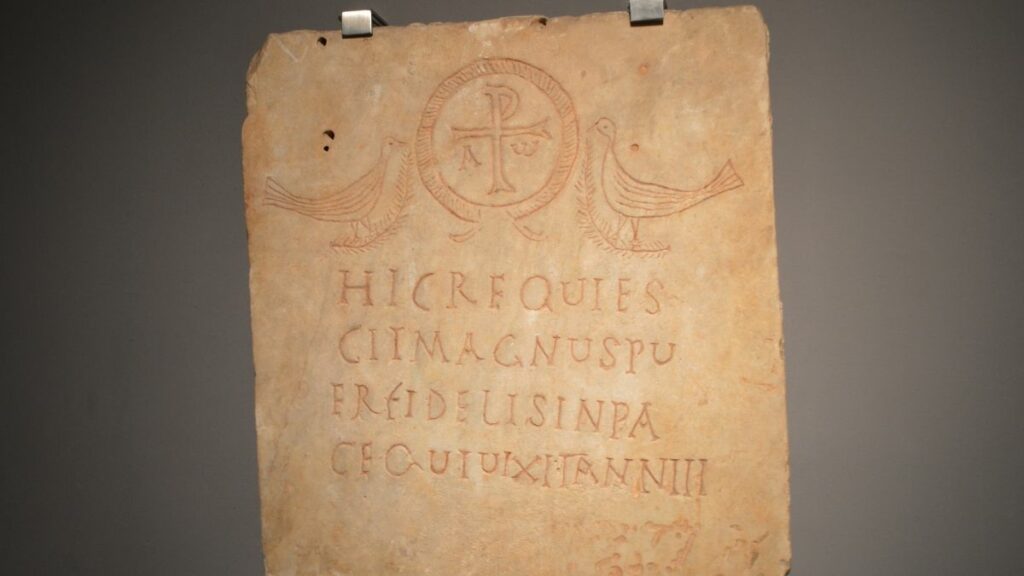 A ω
HICREQUIES
CITMAGNUSPU
ERFIDELISINPA
CEQUIUIXITANNIII